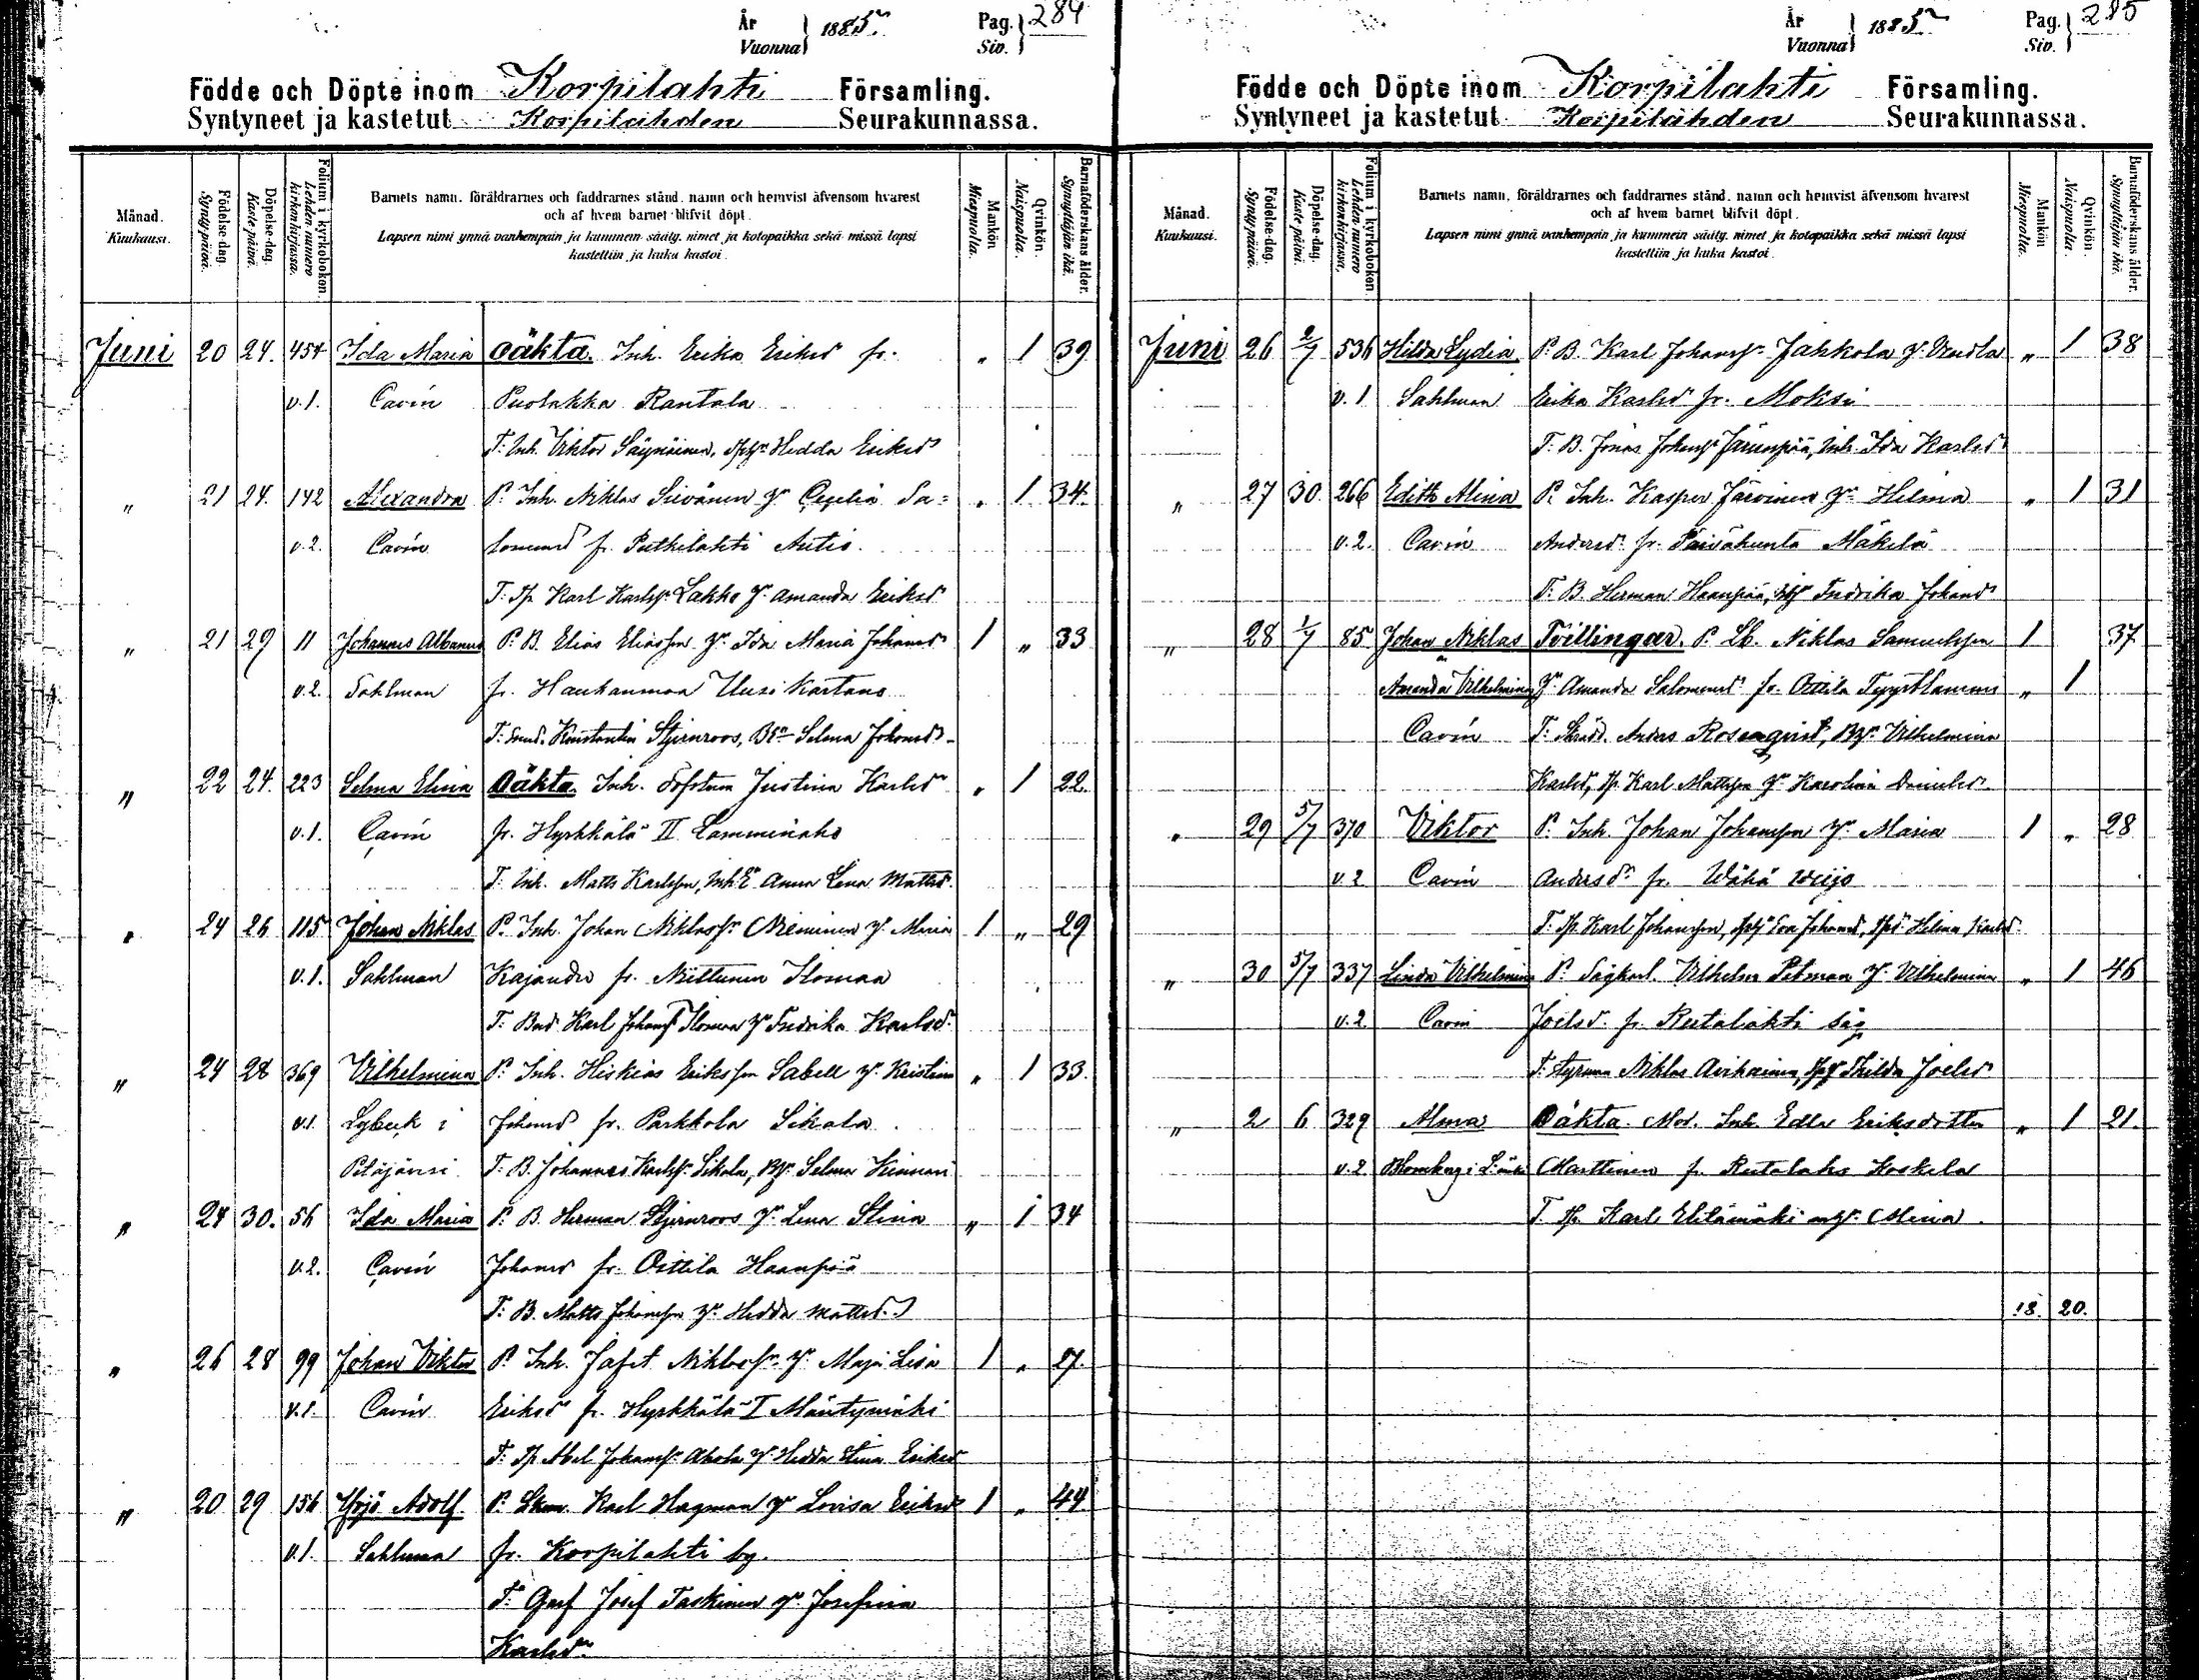 År
Vuonna } 1885.
Pag.
Siv. } 284
Födde och Döpte inom Korpilahti Församling.
Syntyneet ja kastetut Korpilahden Seurakunnassa.
Månad. Kuukausi.
Födelse-dag. Synty-päivä.
Döpelse-dag. Kaste-päivä.
Folium i kyrkobokon. Lehden numero kirkonkirjassa.
Barnets namn, föräldrarnes och faddrarnes stånd, namn och hemvist äfvensom hvarest
och af hvem barnet blifvit döpt.
Lapsen nimi ynnä vanhempain ja kummein sääty, nimet ja kotopaikka sekä missä lapsi
kastettiin ja kuka kastoi.
Mankön. Miespuolta.
Qvinkön. Naispuolta.
Barnaföderskans ålder. Synnyttäjän ikä.
Juni 20 24. 454 Ida Maria oäkta. Inh. Erika Eriksdr fr. „ 1 39
v.1. Cavén Puolakka Rantala
T: Inh. Viktor Säynäinen, Hedda Eriksdr
„ 21 24. 142 Alexandra P. Inh. Niklas Siivänen Cecilia Sa= „ 1 34.
v.2. Cavén lomonsd fr. Putkilahti Autio.
T: Karl Karlss. Lakko Amanda Eriksdr
„ 21 29 11 Johannes Albanus P. B. Elias Eliasson Ida Maria Johansdr 1 „ 33
v.2. Sahlman fr. Haukanmaa Uusi Kartano
T: Konstantin Stjernroos, Selma Johansdr
„ 22 24. 223 Selma Elina Oäkta. Inh. Justina Karlsdr „ 1 22.
v.1. Cavén fr. Hyrkkälä II Lamminaho
T: Inh. Matts Karlsson, Anna Lena Mattsd.
„ 24 26 115 Johan Niklas P. Inh. Johan Niklass. Nieminen Maria 1 „ 29
v.1. Sahlman Kajander fr. Mutanen Ilomaa
T: Karl Johanss. Ilomaa Fredrika Karlsd.
„ 24 28 369 Vilhelmina P. Inh. Hiskias Eriksson Sabell Kristina „ 1 33.
v.1. Lybeck i Johansd fr. Parkkola Sikala.
Petäjävesi T: B. Johannes Karlss. Sikala, Selma Kinnari
„ 24 30. 56 Ida Maria P. B. Herman Stjernroos Lena Stina „ 1 34
v.2. Cavén Johansd fr. Oittila Haanpää
T: B. Matts Johansson Hedda Mattsd.
„ 26 28 99 Johan Viktor P. Inh. Jafet Niklass. Maja Lisa 1 „ 27.
v.1. Cavén Eriksdr fr. Hyrkkälä I Mäntymäki
T: Abel Johanss. Ahola Hedda Stina Eriksd
„ 20 29 156 Yrjö Adolf P. Karl Hagman Lovisa Eriksdr 1 „ 44
v.1. Sahlman fr. Korpilahti by.
T: Josef Taskinen Josefina
Karlsdr.
År
Vuonna } 1885
Pag.
Siv. } 285
Födde och Döpte inom Korpilahti Församling.
Syntyneet ja kastetut Korpilahden Seurakunnassa.
Månad. Kuukausi.
Födelse-dag. Synty-päivä.
Döpelse-dag. Kaste-päivä.
Folium i kyrkobokon. Lehden numero kirkonkirjassa.
Barnets namn, föräldrarnes och faddrarnes stånd, namn och hemvist äfvensom hvarest
och af hvem barnet blifvit döpt.
Lapsen nimi ynnä vanhempain ja kummein sääty, nimet ja kotopaikka sekä missä lapsi
kastettiin ja kuka kastoi.
Mankön. Miespuolta.
Qvinkön. Naispuolta.
Barnaföderskans ålder. Synnyttäjän ikä.
Juni 26 2/7 536 Hilda Lydia P. B. Karl Johanss. Jahkola „ 1 38
v.1 Sahlman Erika Karlsd fr. Moksi
T: B. Jonas Johanss. Inh. Ida Karlsd.
„ 27 30. 266 Edith Alina P. Inh. Kasper Järvinen Helma „ 1 31
v.2. Cavén Andersd. fr. Päiväkunta Mäkelä
T: B. Herman Haanpää, Fredrika Johansd
„ 28 1/7 85 Johan Niklas Tvillingar. P. Lb. Niklas Samuelsson 1 37
Amanda Vilhelmina Amanda Salomonsd fr. Oittila „ 1
Cavén T: Anders Rosenqvist, Vilhelmina
Karlsd, Karl Mattsson Karolina Danielsd.
„ 29 5/7 370 Viktor P. Inh. Johan Johansson Maria 1 „ 28
v.2 Cavén Andersdr fr. Wähä
T: Karl Johansson, Eva Johansd, Helma Karlsd.
„ 30 5/7 337 Linda Vilhelmina P. Vilhelm Petman Vilhelmina „ 1 46
v.2. Cavén Joelsd. fr. Rutalahti såg
T: Niklas Thilda Joelsd
„ 2 6 329 Alma Oäkta. Mod. Inh. Edla Eriksdotter „ 1 21.
v.2 Blomberg i Marttinen fr. Rutalaks Koskela
T: Karl Ylitämäki Mina.
18. 20.